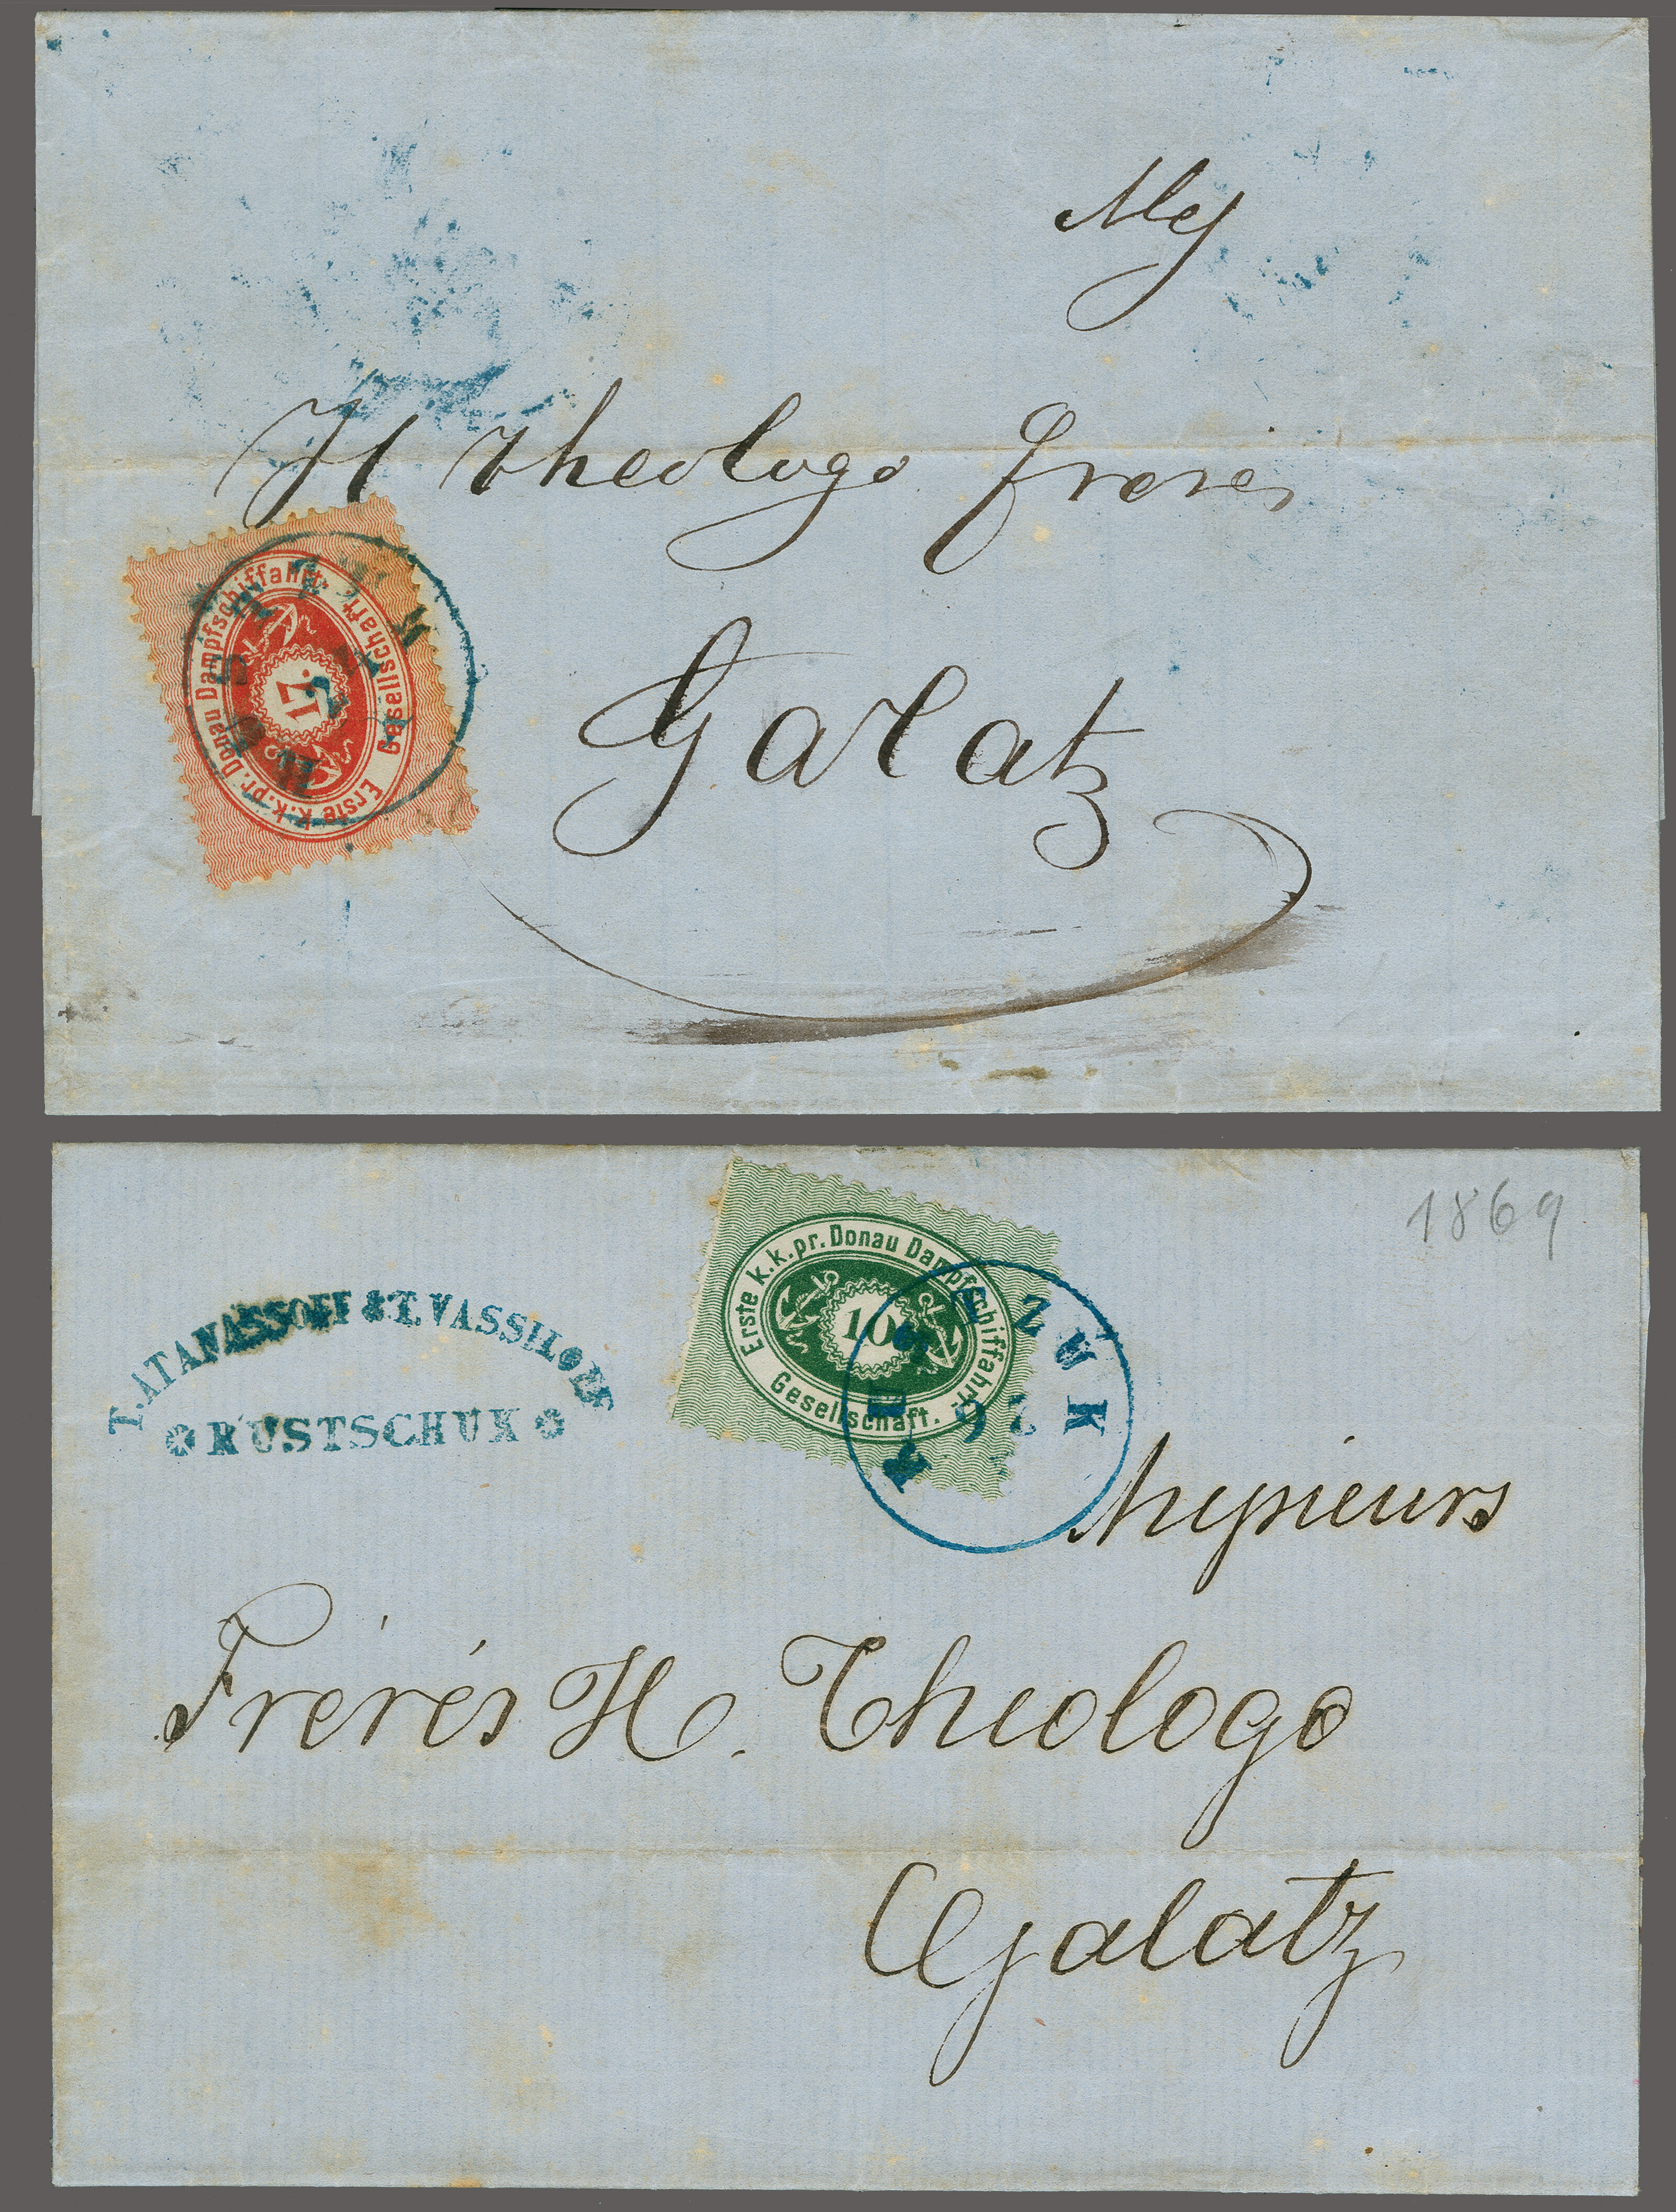 Mrs
H theologo freres
Erste k.k.pr. Donau Dampfschiffahrt. Gesellschaft
17.
Galatz
1869
Erste k.k.pr. Donau Dampfschiffahrt. Gesellschaft.
10
T. ATANASSOFF & T. VASSILOFF
RUSTSCHUK
26
Messieurs
Fréres H. Theologo
Galatz